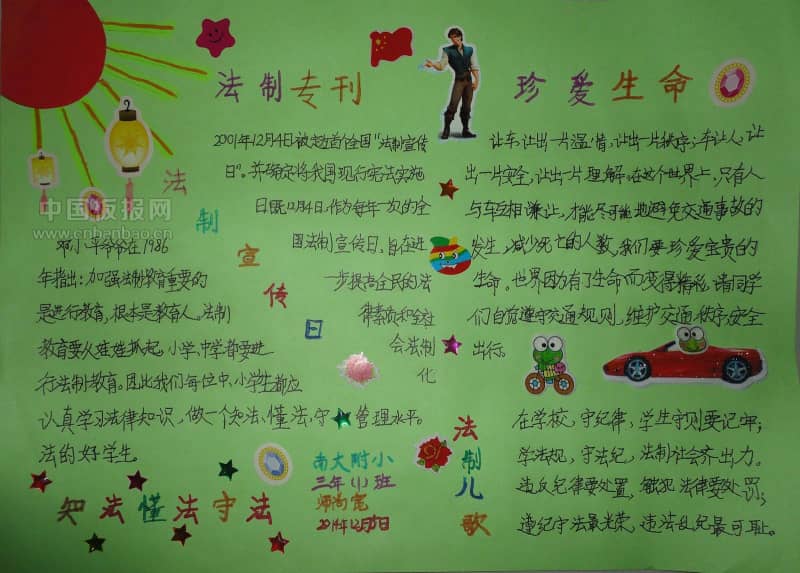 法制专刊
珍爱生命
2001年12月4日被定为首个全国“法制宣传
日”。并确定将我国现行宪法实施
日既12月4日,作为每年一次的全
国法制宣传日,旨在进
一步提高全民的法
律素质和全社
会法制
化
管理水平。
法制宣传日
中国板报网
www.cnbanbao.cn
邓小平爷爷在1986
年指出:加强法制教育重要的
是进行教育,根本是教育人。法制
教育要从娃娃抓起,小学、中学都要进
行法制教育。因此我们每位中、小学生都应
认真学习法律知识,做一个知法、懂法、守
法的好学生。
知法懂法守法
让车,让出一片温情,让出一片秩序;车让人,让
出一片安全,让出一片理解。在这个世界上,只有人
与车互相谦让,才能尽可能地避免交通事故的
发生,减少死亡的人数,我们要珍爱宝贵的
生命。世界因为有了生命而变得精彩,请同学
们自觉遵守交通规则,维护交通秩序,安全
出行。
南大附小
三年(1)班
师尚宽
法制儿歌
在学校,守纪律,学生守则要记牢;
学法规,守法纪,法制社会齐出力。
违反纪律要处置,触犯法律要处罚;
遵纪守法最光荣,违法乱纪最可耻。